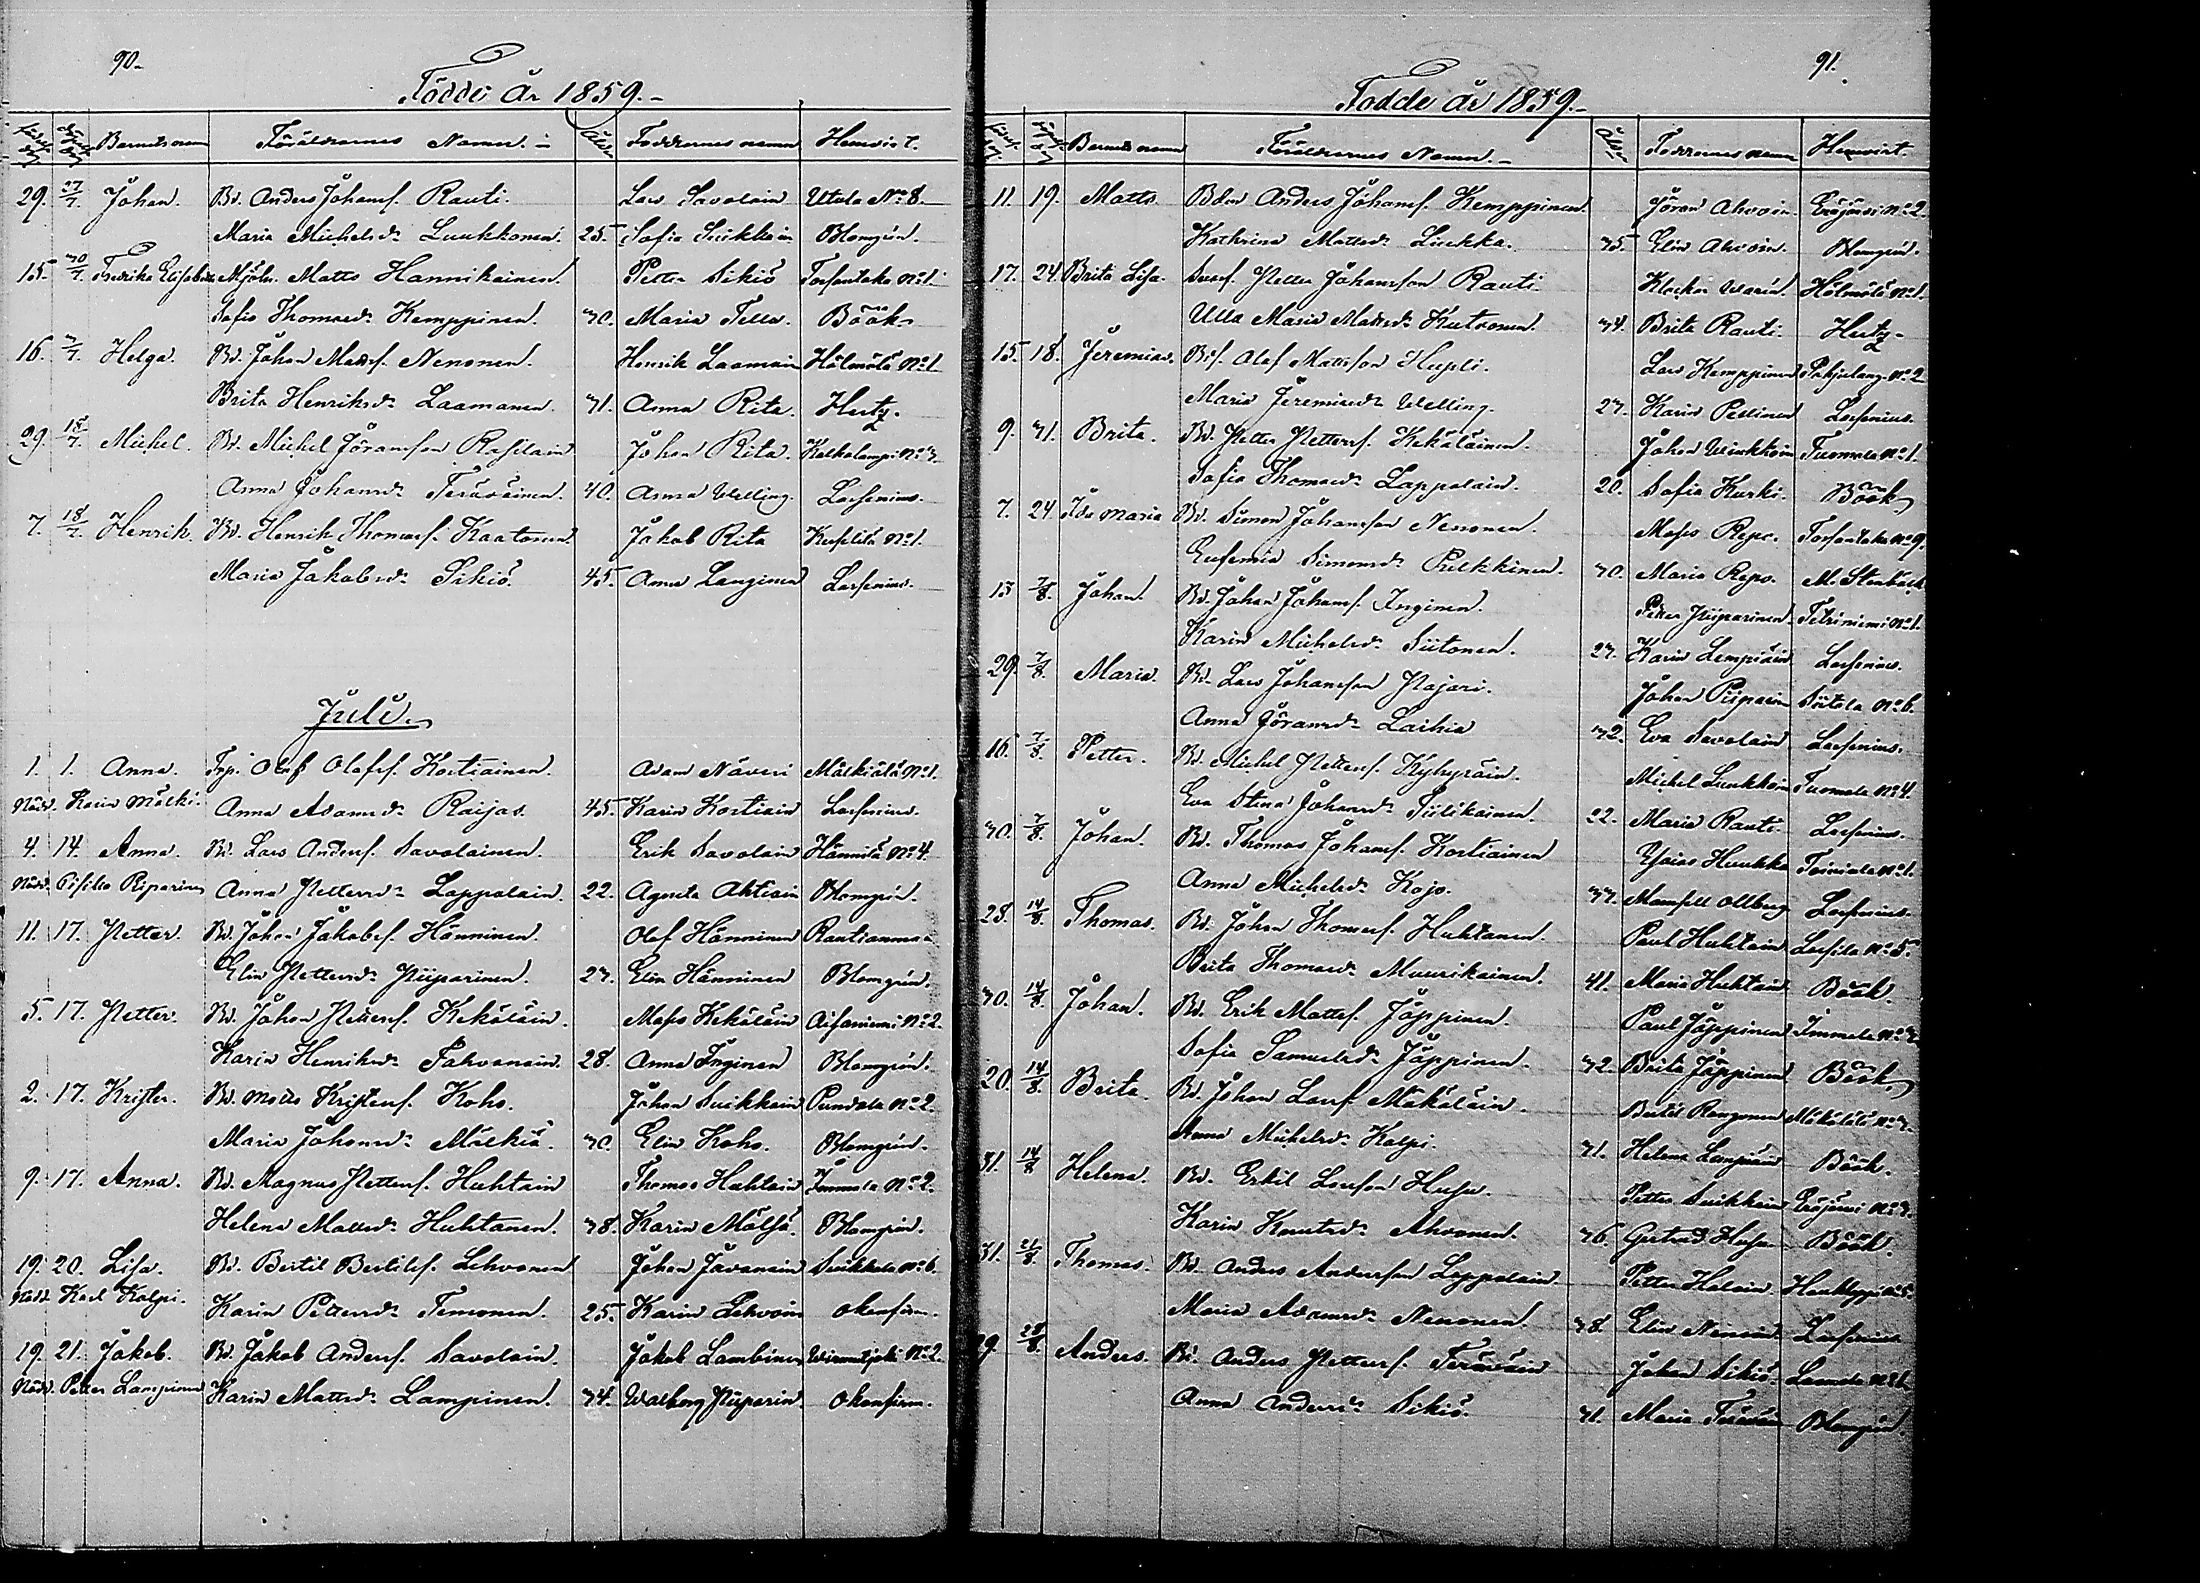 90.
Födde År 1859.
Barnets namn Föräldrarnes Namn. Ålder Faddrarnes namn Hemvist.
29. 27/7. Johan. Bd. Anders Johansf. Rauti. Lars Savolain Utula No 8.
Maria Michelsdr Luukkonen. 25. Sofia Suikkain Blomgrén.
15. Fredrika Elisabeta Mjöln. Matts Hannikainen. Petter Sikiö Torsantaka No 1.
Sofia Thomasdr Kemppinen. 30. Maria Tella. Böök
16. 3/7. Helga. Bd. Johan Mattsf. Nenonen. Henrik Laamain Hölmölä No 1.
Brita Henriksdr Laamanen. 31. Anna Rita. Hertz.
29. 18/7. Michel. Bd. Michel Göransson Rasilain Johan Rita. Kalkalampi No 3.
Anna Johansdr Teräväinen. 40. Anna Welling. Lorsenius.
7. 18/7. Henrik. Bd. Henrik Thomasf. Kaatonen. Jakob Rita No 1.
Maria Jakobsdr Sikiö. 45. Anna Langinen Lorsenius.
Juli.
1. 1. Anna. Olof Olofsf. Kostiainen. Adam Näveri Mälkiälä No 1.
Nödd. Karin Mälki. Anna Adamsdr Raijas. 45. Karin Kostiain Lorsenius.
4. 14. Anna. Bd. Lars Andersf. Savolainen. Erik Savolain Hännilä No 4.
Nödd. Cisilia Piiparinen Anna Pettersdr Lappalain. 22. Agneta Ahtiain Blomgrén.
11. 17. Petter. Bd. Johan Jakobsf. Hänninen. Olof Hänninen Rautianmaa
Elin Pettersdr Piiparinen. 23. Elin Hänninen Blomgrén.
5. 17. Petter. Bd. Johan Pettersf. Kekäläin. Moses Kekäläin No 2.
Karin Henriksdr Tahvanain. 28. Anna Inginen Blomgrén.
2. 17. Krister. Bd. Matts Kristersf. Koho. Johan Suikkain Pundala No 2.
Maria Johansdr Mälkiä. 30. Elin Koho. Blomgrén.
9. 17. Anna. Bd. Magnus Pettersf. Huhtain Thomas Huhtain Immola No 2.
Helena Mattsdr Huhtanen. 38. Karin Mälsä. Blomgrén.
19. 20. Lisa. Bd. Bertil Bertilsf. Lehvonen Johan Javanain Suikkala No 6.
Nödd. Karl Kolpi. Karin Pettersdr Temonen. 25. Karin Lehvoin okonfirm.
19. 21. Jakob. Bd. Jakob Andersf. Savolain. Jakob Lambinen No 2.
Nödd. Petter Lampinen Karin Mattsdr Lampinen. 34. Walborg Piiparin. okonfirm.
91.
Födde år 1859.
Barnets namn Föräldrarnes Namn. Ålder Faddrarnes namn Hemvist.
11. 19. Matts Anders Johansf. Kemppinen. Jöran Ahvoin. Eräjärvi No 2.
Kathrina Mattsdr Liukka. 35. Elin Ahvoin. Blomgrén.
17. 24. Brita Lisa. Petter Johansson Rauti Hölmölä No 1.
Ulla Maria Mattsdr Kutvonen. 34. Brita Rauti. Hertz
15. 18. Jeremias. Olof Mattsson Hupli. Lars Kemppinen Pohjalang. No 2
Maria Jeremiasdr Welling. 23. Karin Pellinen Lorsenius.
9. 31. Brita. Bd. Petter Pettersf. Kekäläinen. Johan Tuomala No 1.
Sofia Thomasdr Lappalain. 20. Sofia Kurki. Böök
7. 24. Ida Maria Bd. Simon Johansson Nenonen. Moses Repo. Torsantaka No 9.
Eufemia Simonsdr Pulkkinen. 30. Maria Repo. M. Stenbäck
13 7/8. Johan. Bd. Johan Johansf. Inginen. Petter Piiparinen Tetriniemi No 1.
Karin Michelsdr Siitonen. 23. Karin Lempiäin Lorsenius.
29. 7/8. Maria. Bd. Lars Johansson Pajari. Johan Piiparin Siitola No 6.
Anna Göransdr Laihia 32. Eva Savolain Lorsenius.
16 7/8. Petter. Bd. Michel Pettersf. Kyhyräin. Michel Luukkain Tuomala No 4.
Eva Stina Johansdr Tiilikainen. 22. Maria Rauti. Lorsenius.
30. 7/8. Johan. Bd. Thomas Johansf. Kostiainen Esaias Huukka Toiviala No 1.
Anna Michelsdr Kojo. 33. Mamsell Ollberg Lorsenius.
28. 14/8. Thomas. Bd. Johan Thomasf. Huhtanen. Paul Huhtain Lorsila No 5.
Brita Thomasdr Muurikainen. 41. Maria Huhtain Böök.
30. 14/8. Johan. Bd. Erik Mattsf. Jäppinen. Paul Jäppinen Immola No 3
Sofia Samuelsdr Jäppinen. 32. Brita Jäppinen Böök
20. 14/8. Brita. Bd. Johan Larsf. Mäkäläin. Bertil Rongonen Mäkälälä No 3.
Anna Michelsdr Kolpi. 31. Helena Lempiäin Böök.
31. 14/8 Helena. Bd. Eskil Larsson Husu. Petter Suikkain Eräjärvi No 3.
Karin Knutsdr Ahvonen. 36. Gertrud Husu Böök.
31. 21/8. Thomas. Bd. Anders Andersson Lappalain. Petter Halain No 5.
Maria Adamsdr Nenonen. 38. Elin Nenoin Lorsenius
29. 28/8. Anders. Bd. Anders Pettersf. Teräväin Johan Sikiö. No 1.
Anna Andersdr Sikiö. 31. Maria Teräväin Blomgrén.